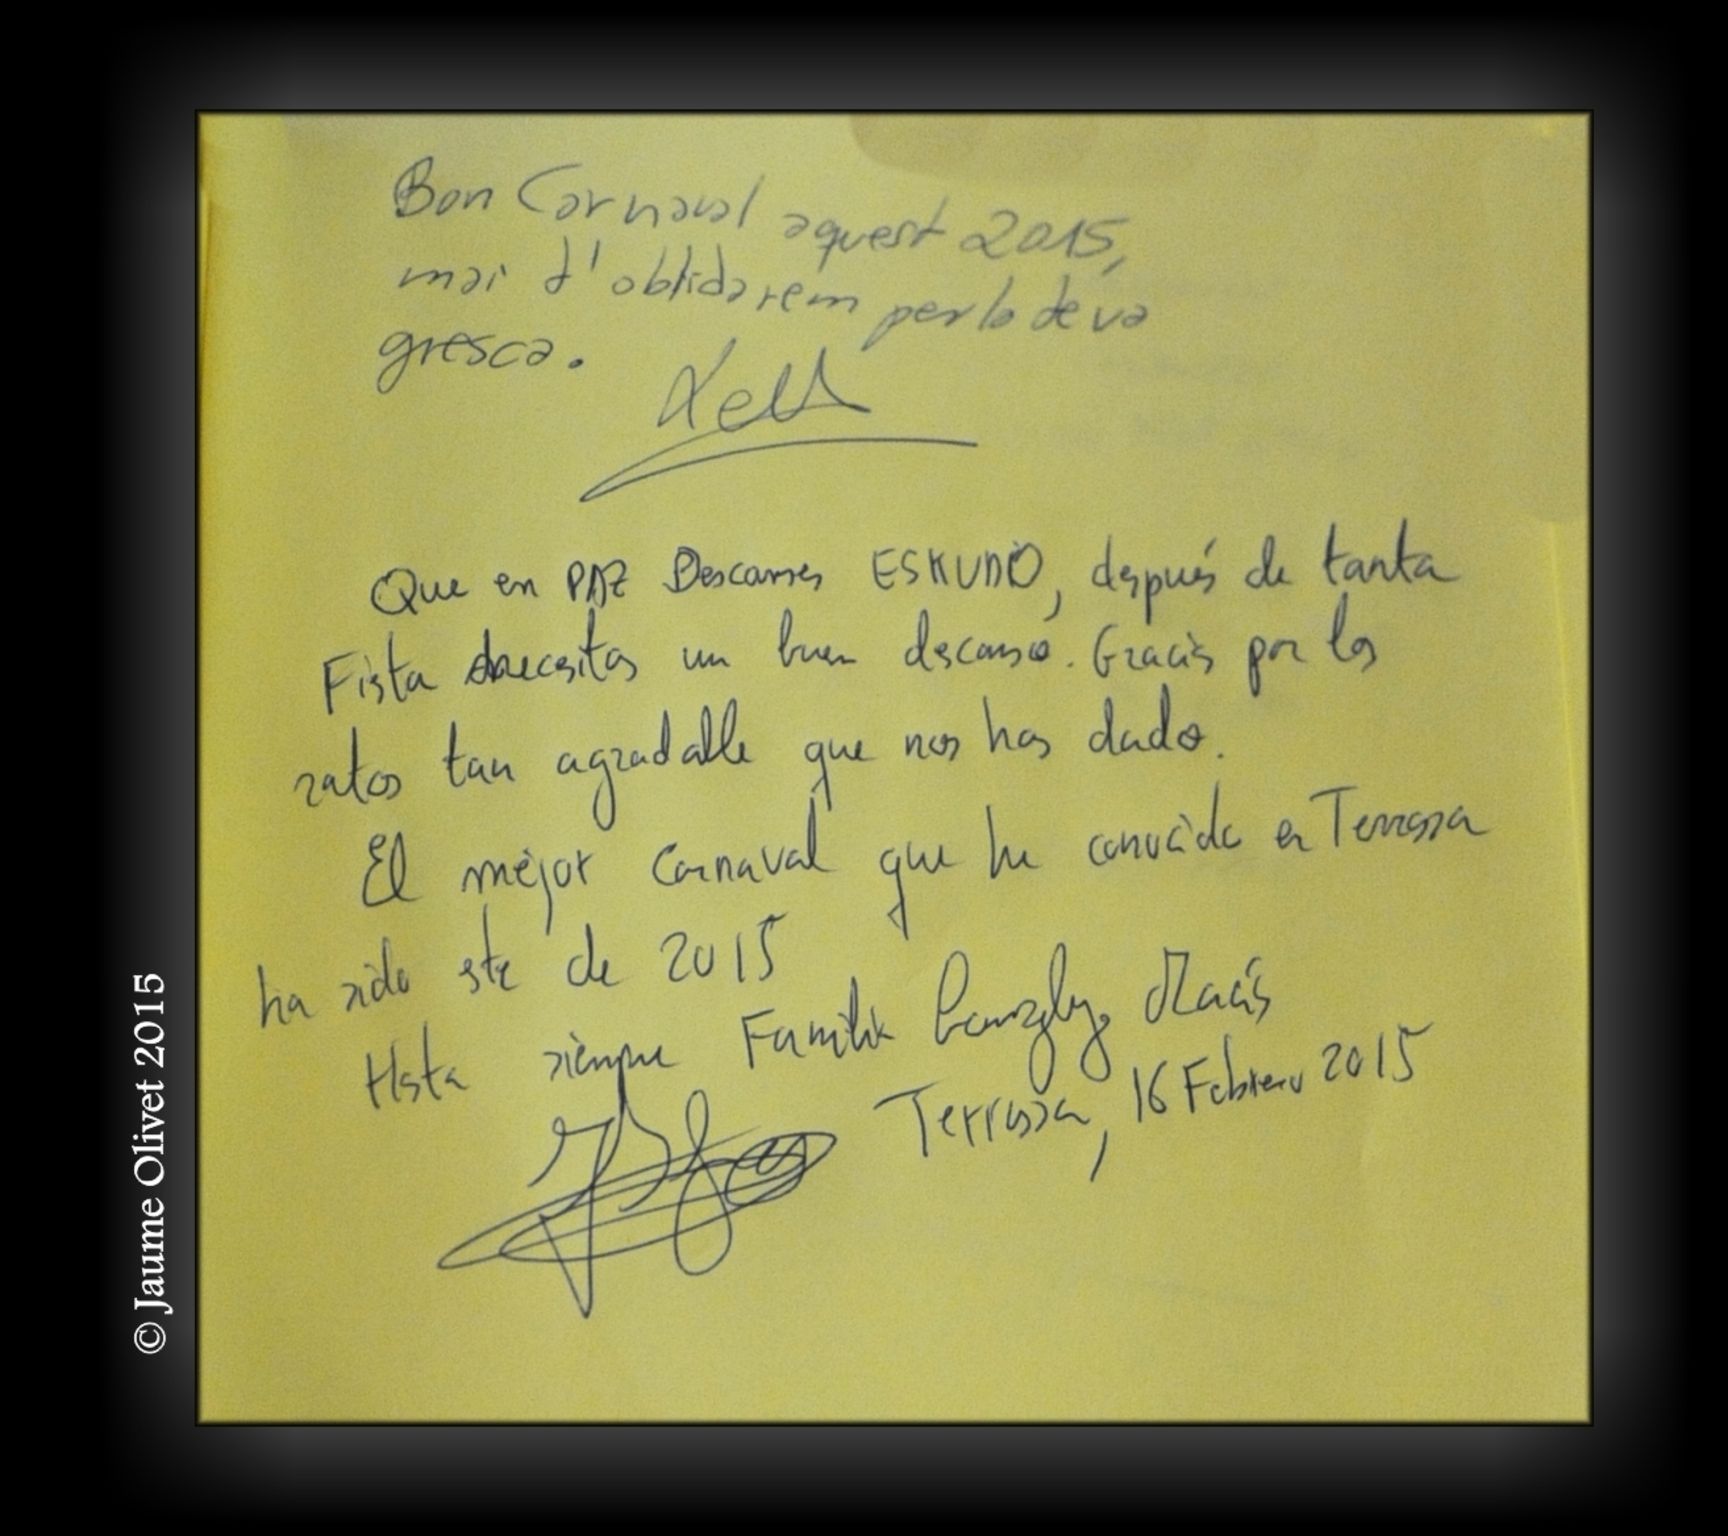 Bon Carnaval aquest 2015,
mai t'oblidarem per la teva
gresca.
Que en PAZ Descanses ESKUDO, después de tanta
Fista necesitas un buen descanso. Gracias por los
ratos tan agradable que nos has dado.
El mejor Carnaval que he conocido en Terrassa
ha sido este de 2015
Hasta siempre Familia Macís
Terrassa, 16 Febrero 2015
© Jaume Olivet 2015